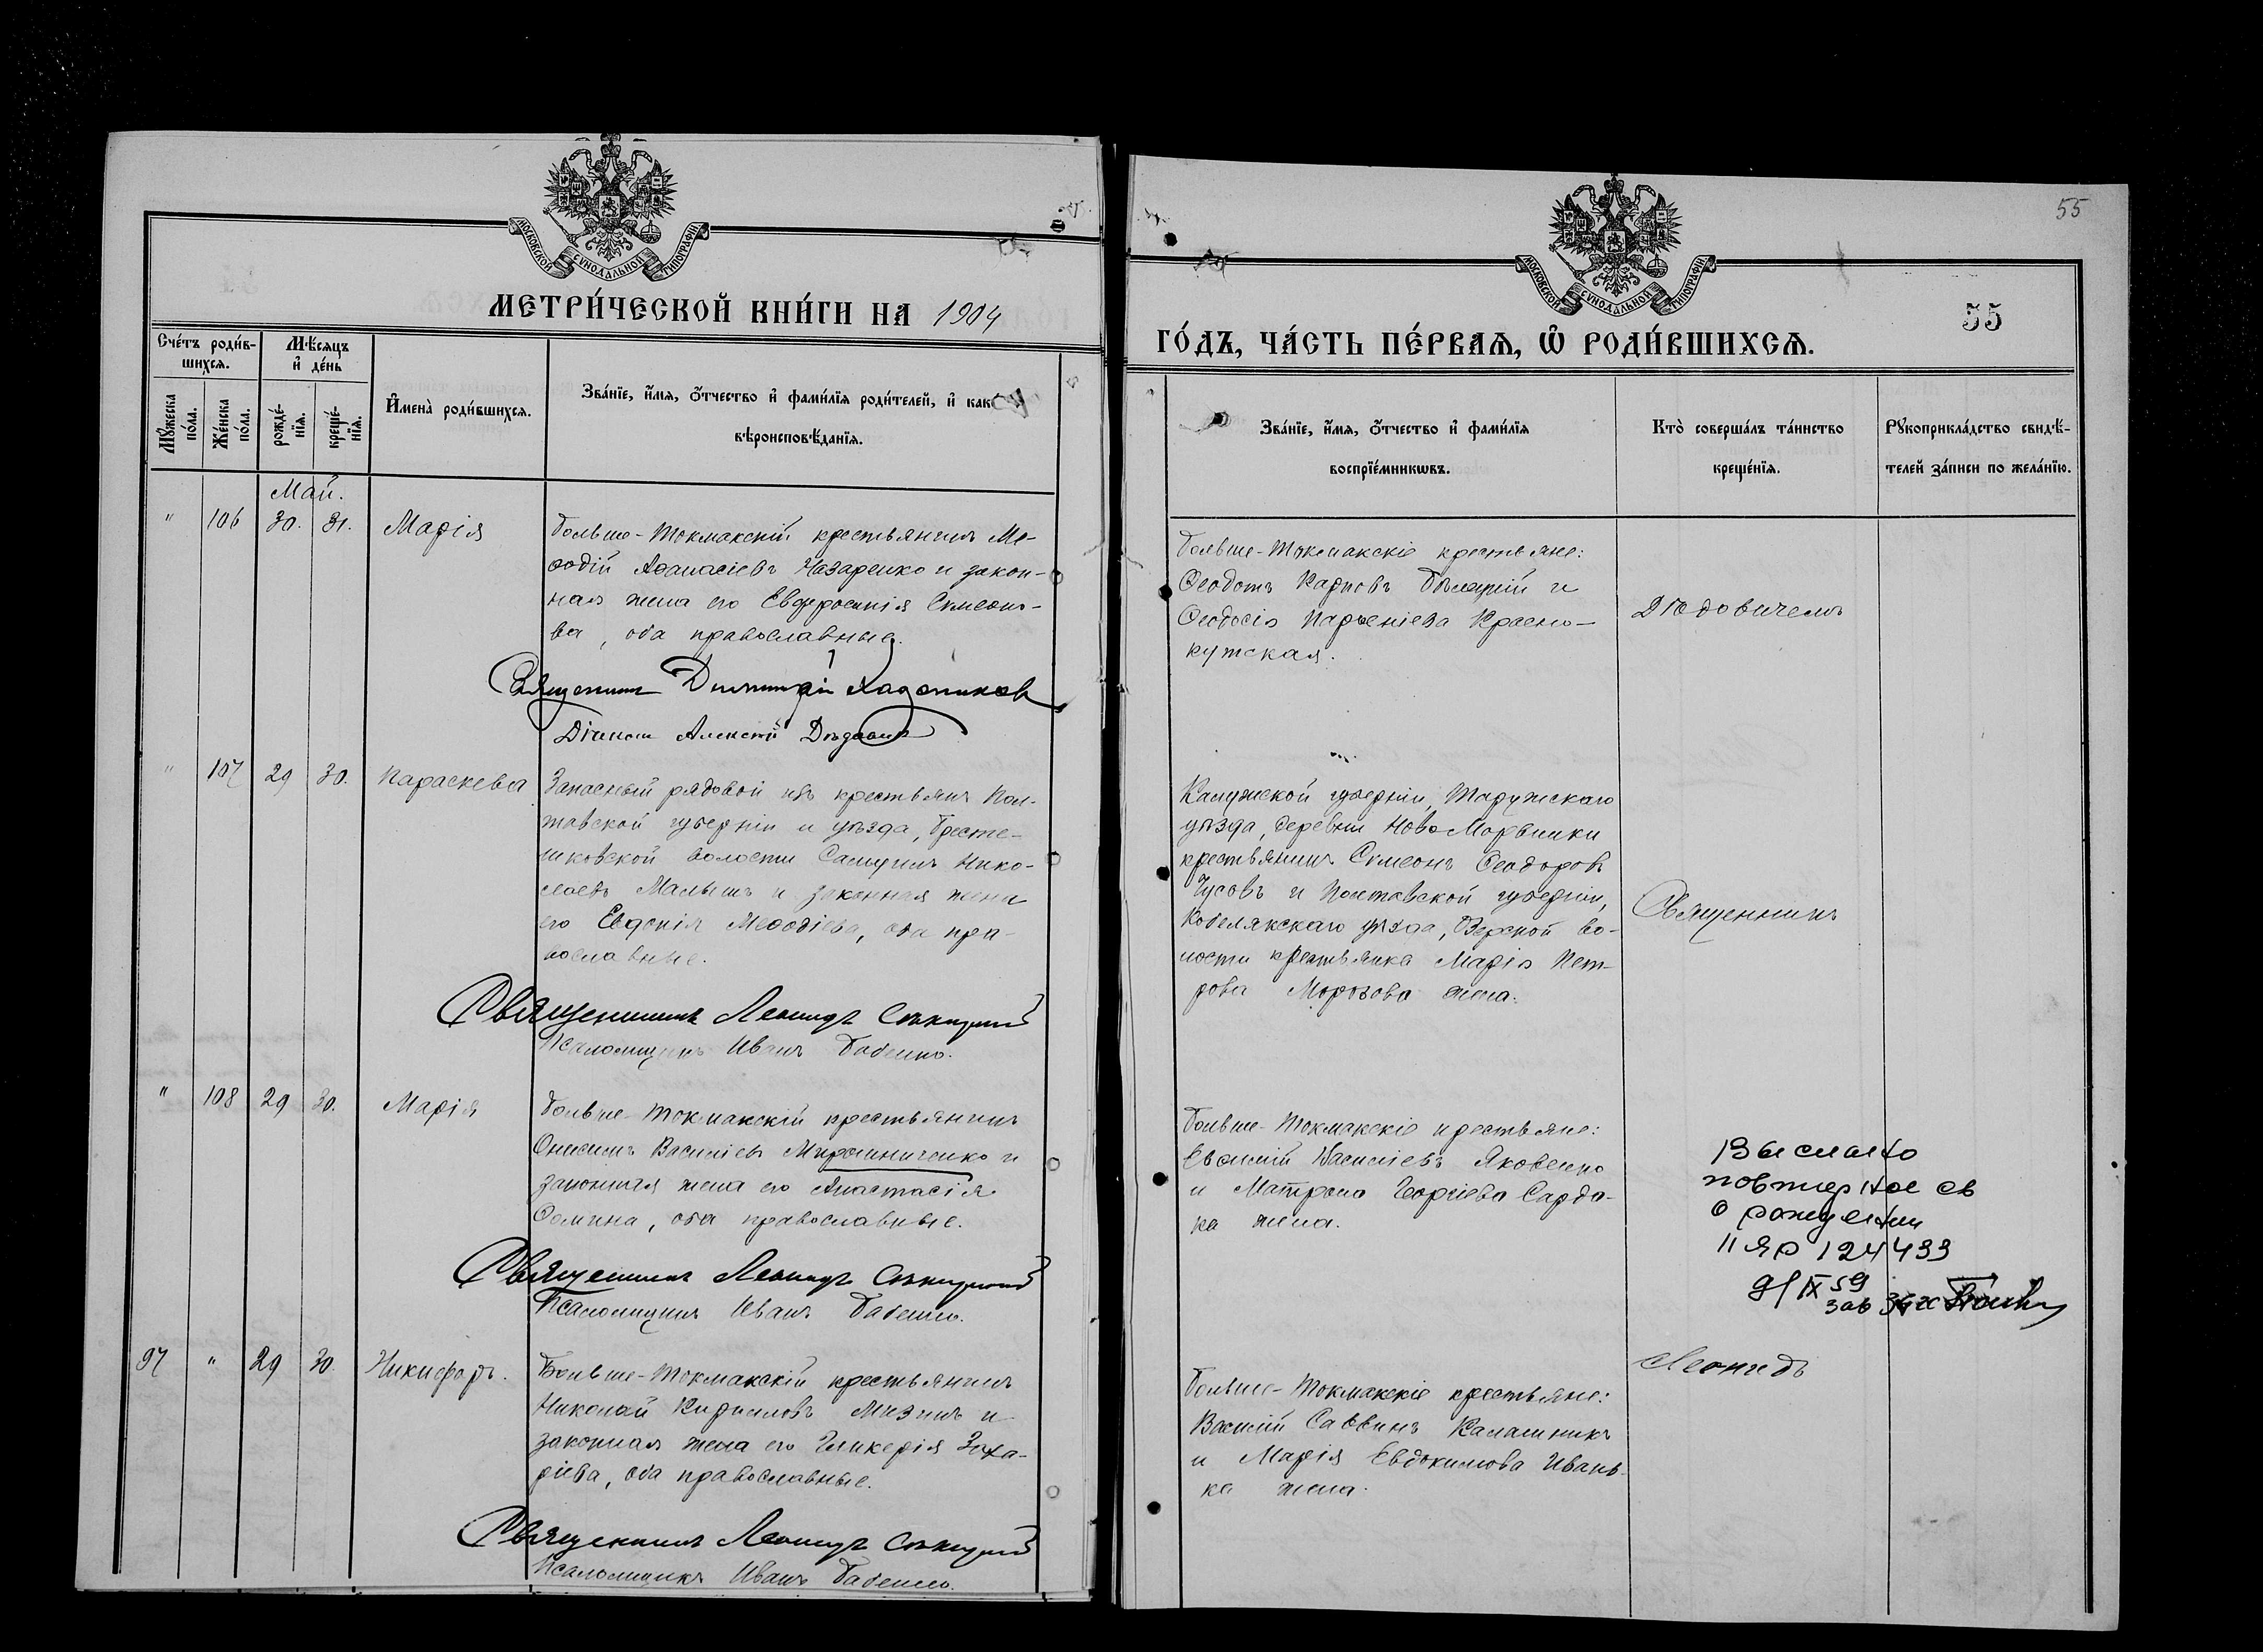 МОСКОВСКОЙ СУНОДАЛЬНОЙ ТИПОГРАФІИ
МЕТРИ́ЧЕСКОЙ КНИ́ГИ НА 1904
Сче́тъ роди́в-
шихсѧ.
Мѣ́сяцъ
и҆ де́нь
Мꙋ́жеска
по́ла.
Же́нска
по́ла.
рожде́-
нїѧ.
креще́-
нїѧ.
И҆мена̀ роди́вшихсѧ.
Зва́нїе, и҆́мѧ, ѻ҆́тчество и҆ фами́лїѧ роди́телей, и҆ как
вѣроисповѣ́данїѧ.
Май.
" 106 30. 31. Марія
Больше-Токмакскій крестьянинъ Ме-
ѳодій Аѳанасіевъ Назаренко и закон-
ная жена его Евфросинія Симеоно-
ва, оба православные.
Священникъ Димитрій
Діаконъ Алексѣй
" 107 29 30. Параскева
Запасный рядовой изъ крестьянъ Пол-
тавской губерніи и уѣзда, Бресте-
шковской волости Самуилъ Нико-
лаевъ Малышъ и законная жена
его Евдокія Меѳодіева, оба пра-
вославные.
Священникъ Леонидъ
Псаломщикъ Иванъ Бабенко.
" 108 29 30. Марія
Больше-Токмакскій крестьянинъ
Онисимъ Василіевъ Мирошниченко и
законная жена его Анастасія
Ѳомина, оба православные.
Священникъ Леонидъ
Псаломщикъ Иванъ Бабенко.
97 " 29 30. Никифоръ.
Больше-Токмакскій крестьянинъ
Николай Кирилловъ Мизинъ и
законная жена его Гликерія Заха-
ріева, оба православные.
Священникъ Леонидъ
Псаломщикъ Иванъ Бабенко.
55
МОСКОВСКОЙ СУНОДАЛЬНОЙ ТИПОГРАФІИ
55
ГО́ДЪ, ЧА́СТЬ ПЕ́РВАѦ, Ѽ РОДИ́ВШИХСѦ.
Зва́нїе, и҆́мѧ, ѻ҆́тчество и҆ фами́лїѧ
воспрїе́мникѡвъ.
Кто̀ соверша́лъ та́инство
креще́нїѧ.
Рꙋкоприкла́дство свидѣ́-
телей за́писи по жела́нїю.
Больше-Токмакскіе крестьяне:
Ѳеодотъ Карповъ Бѣлецкій и
Ѳеодосія Парѳеніева Красно-
кутская.
Калужской губерніи, Тарузскаго
уѣзда, деревни Ново
крестьянинъ Симеонъ Ѳеодоровъ
Чусовъ и Полтавской губерніи,
Кобелякскаго уѣзда, во-
лости крестьянка Марія Пет-
рова Морозова жена.
Священникъ
Больше-Токмакскіе крестьяне:
Евѳимій Василіевъ Яковенко
и Матрона Георгіева Сардо-
ка жена.
Выслано
повторное св
о рождении
II ЯР 124433
9/IX 59
зав
Леонидъ
Больше-Токмакскіе крестьяне:
Василій Саввинъ Калашникъ
и Марія Евдокимова Ивань-
ка жена.